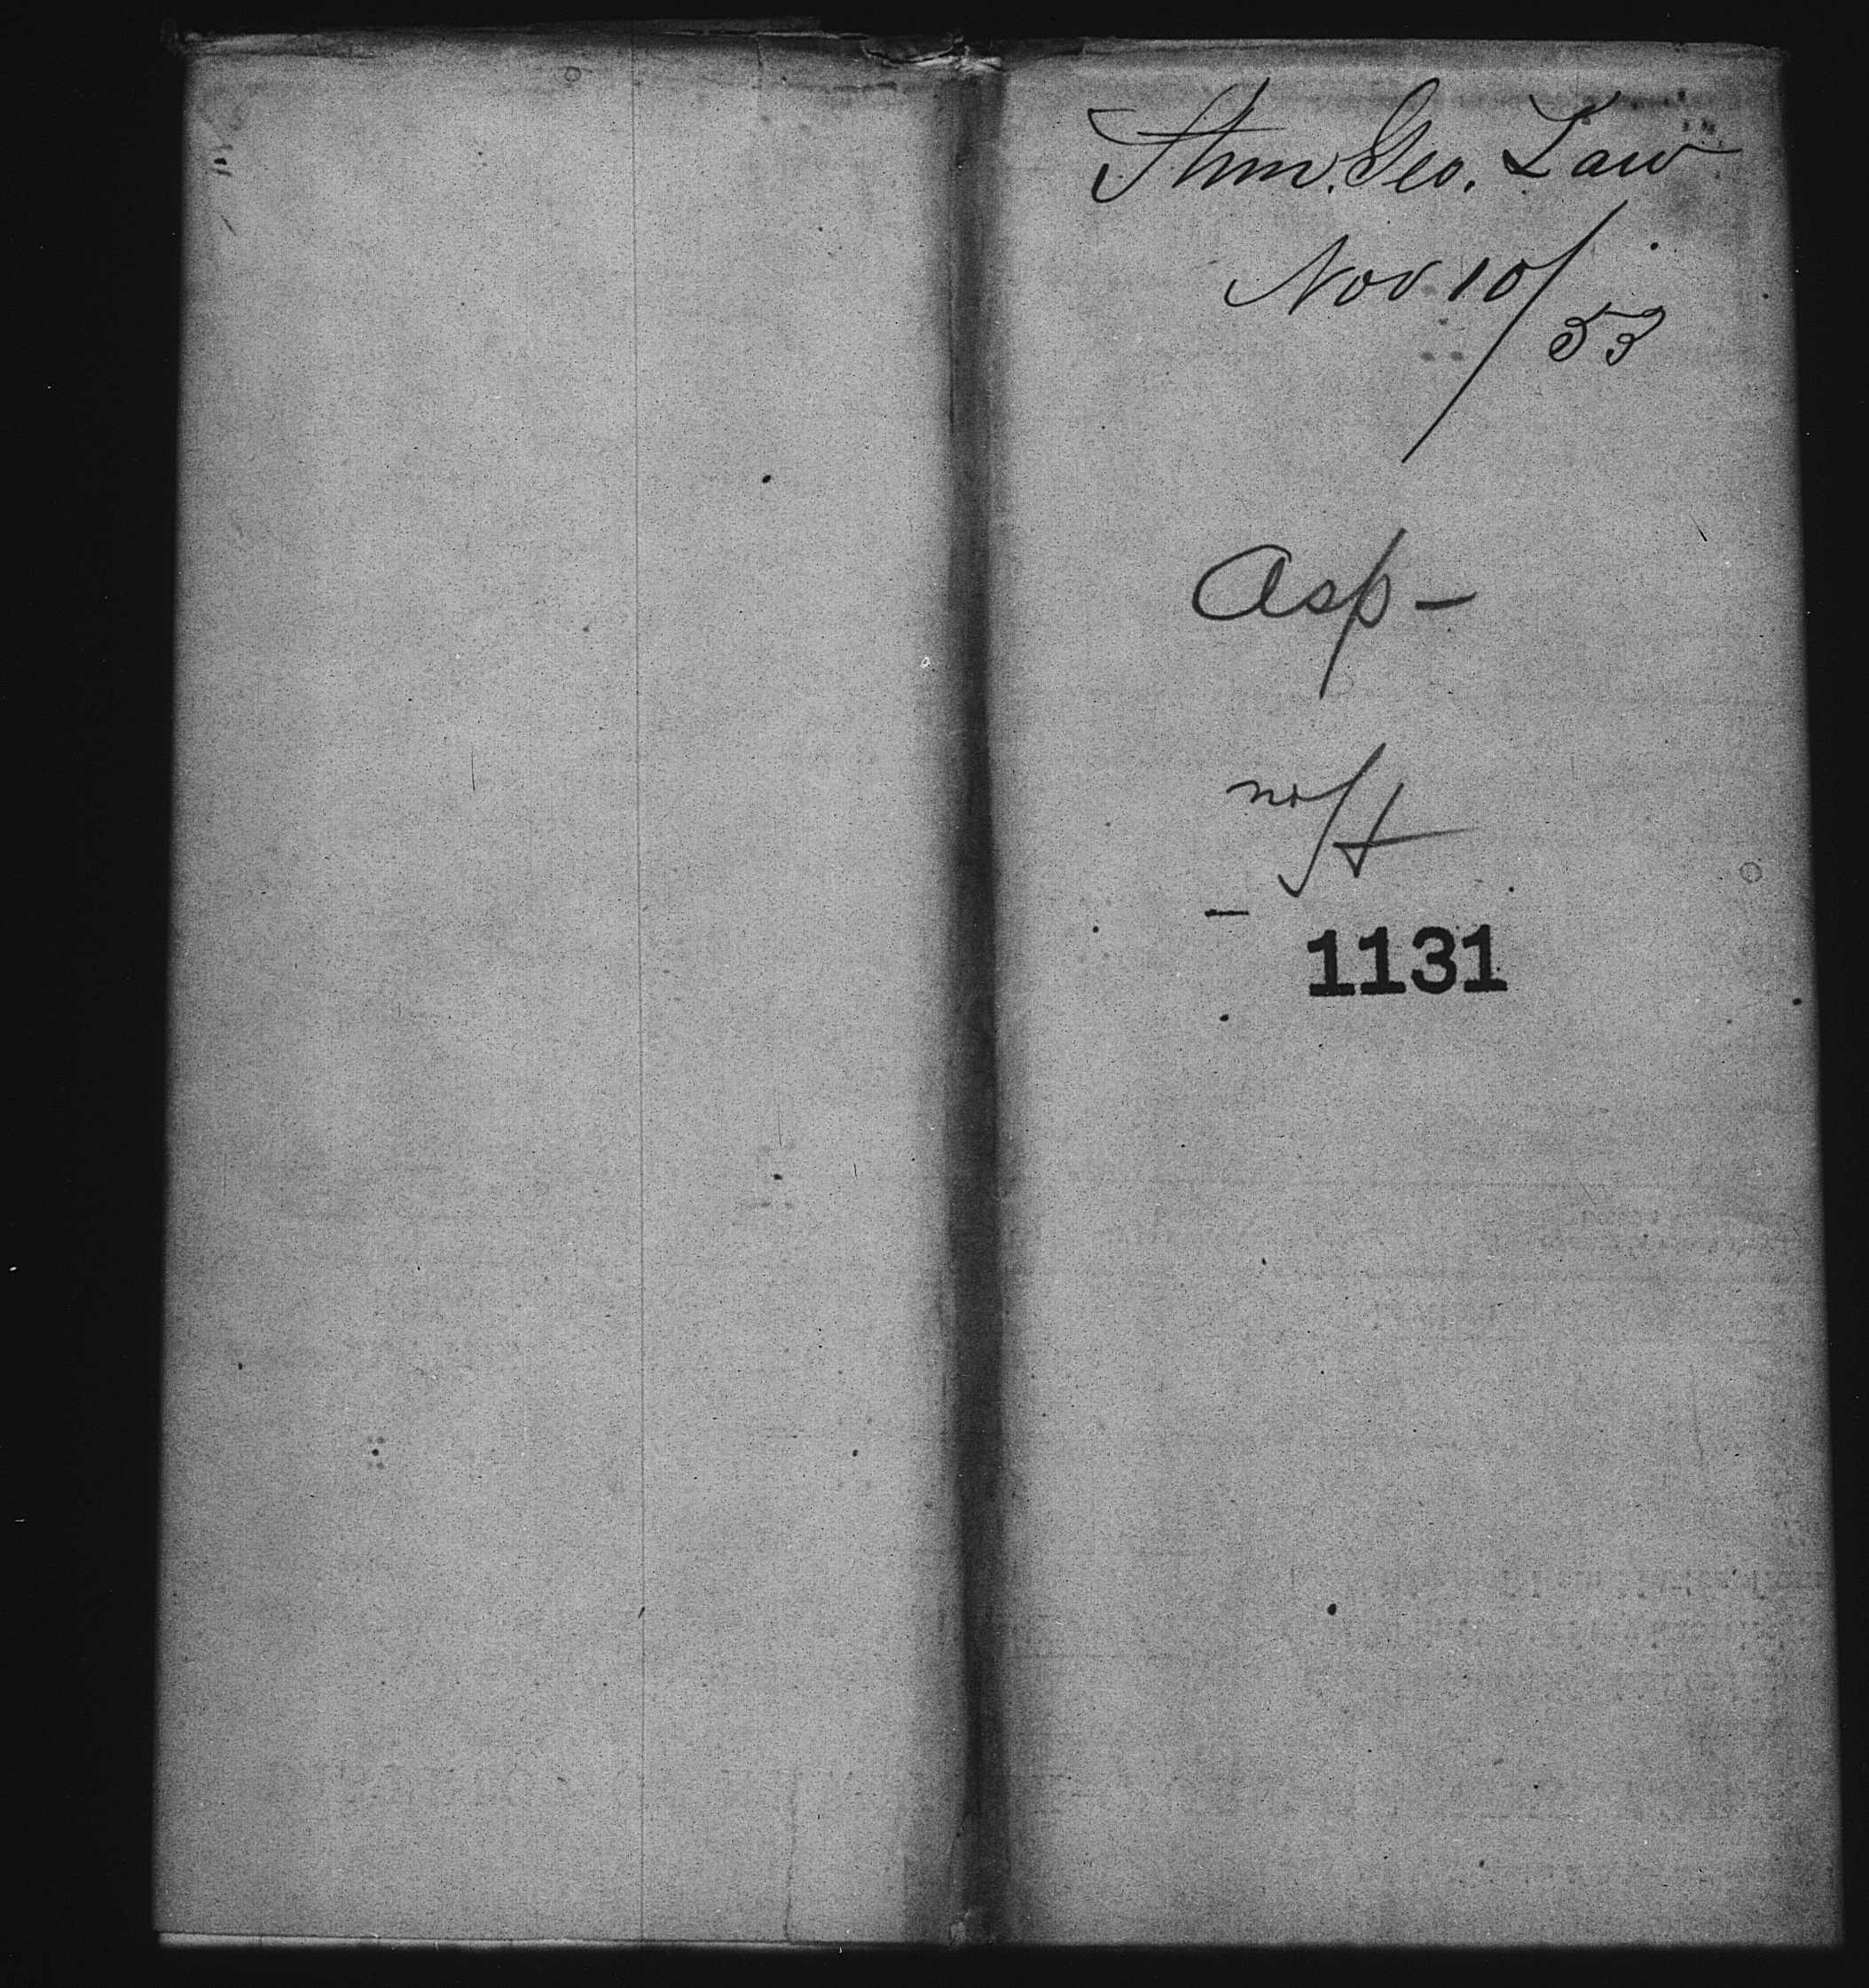 Stmr. Geo. Law
Nov 10/53
Asp -
1131